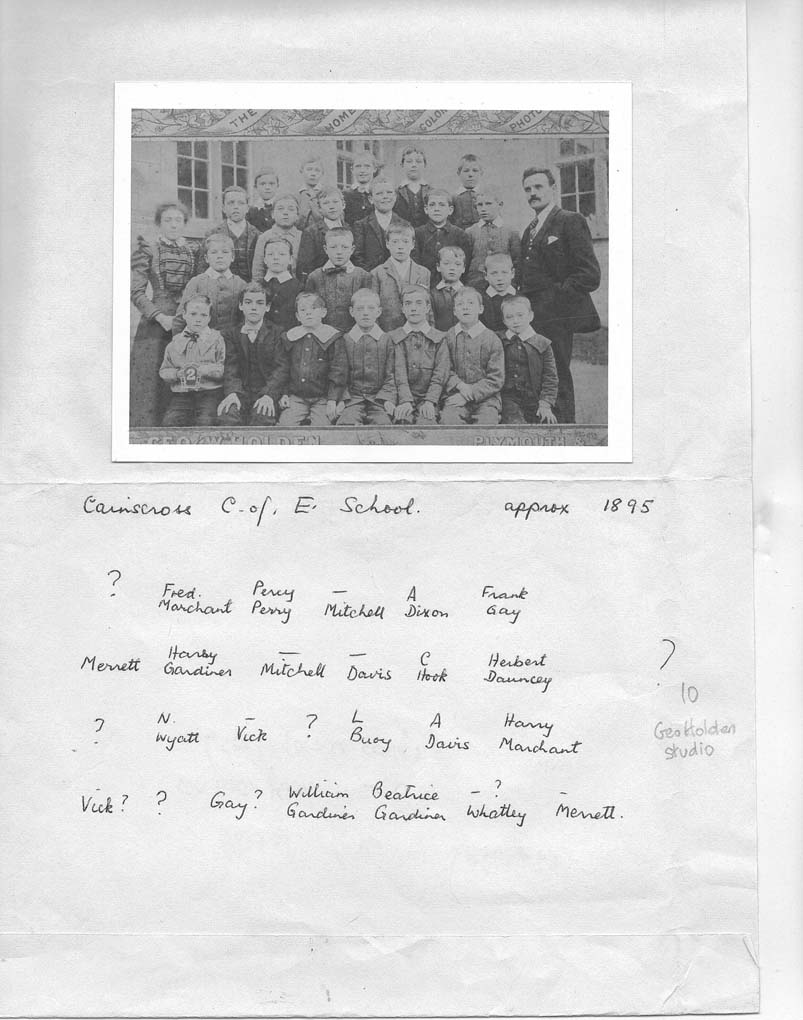 THE HOME COLON PHOTO
GEO. W. HOLDEN PLYMOUTH &
Cainscross C. of. E. School. approx 1895
? Fred. Percy — A Frank
Marchant Perry Mitchell Dixon Gay
Harry — — C Herbert ?
Merrett Gardiner Mitchell Davis Hook Dauncey
10
? N. — ? L A Harry
Wyatt Vick Buoy Davis Marchant
Geo Holden
studio
William Beatrice — ? —
Vick? ? Gay? Gardiner Gardiner Whatley Merrett.
2